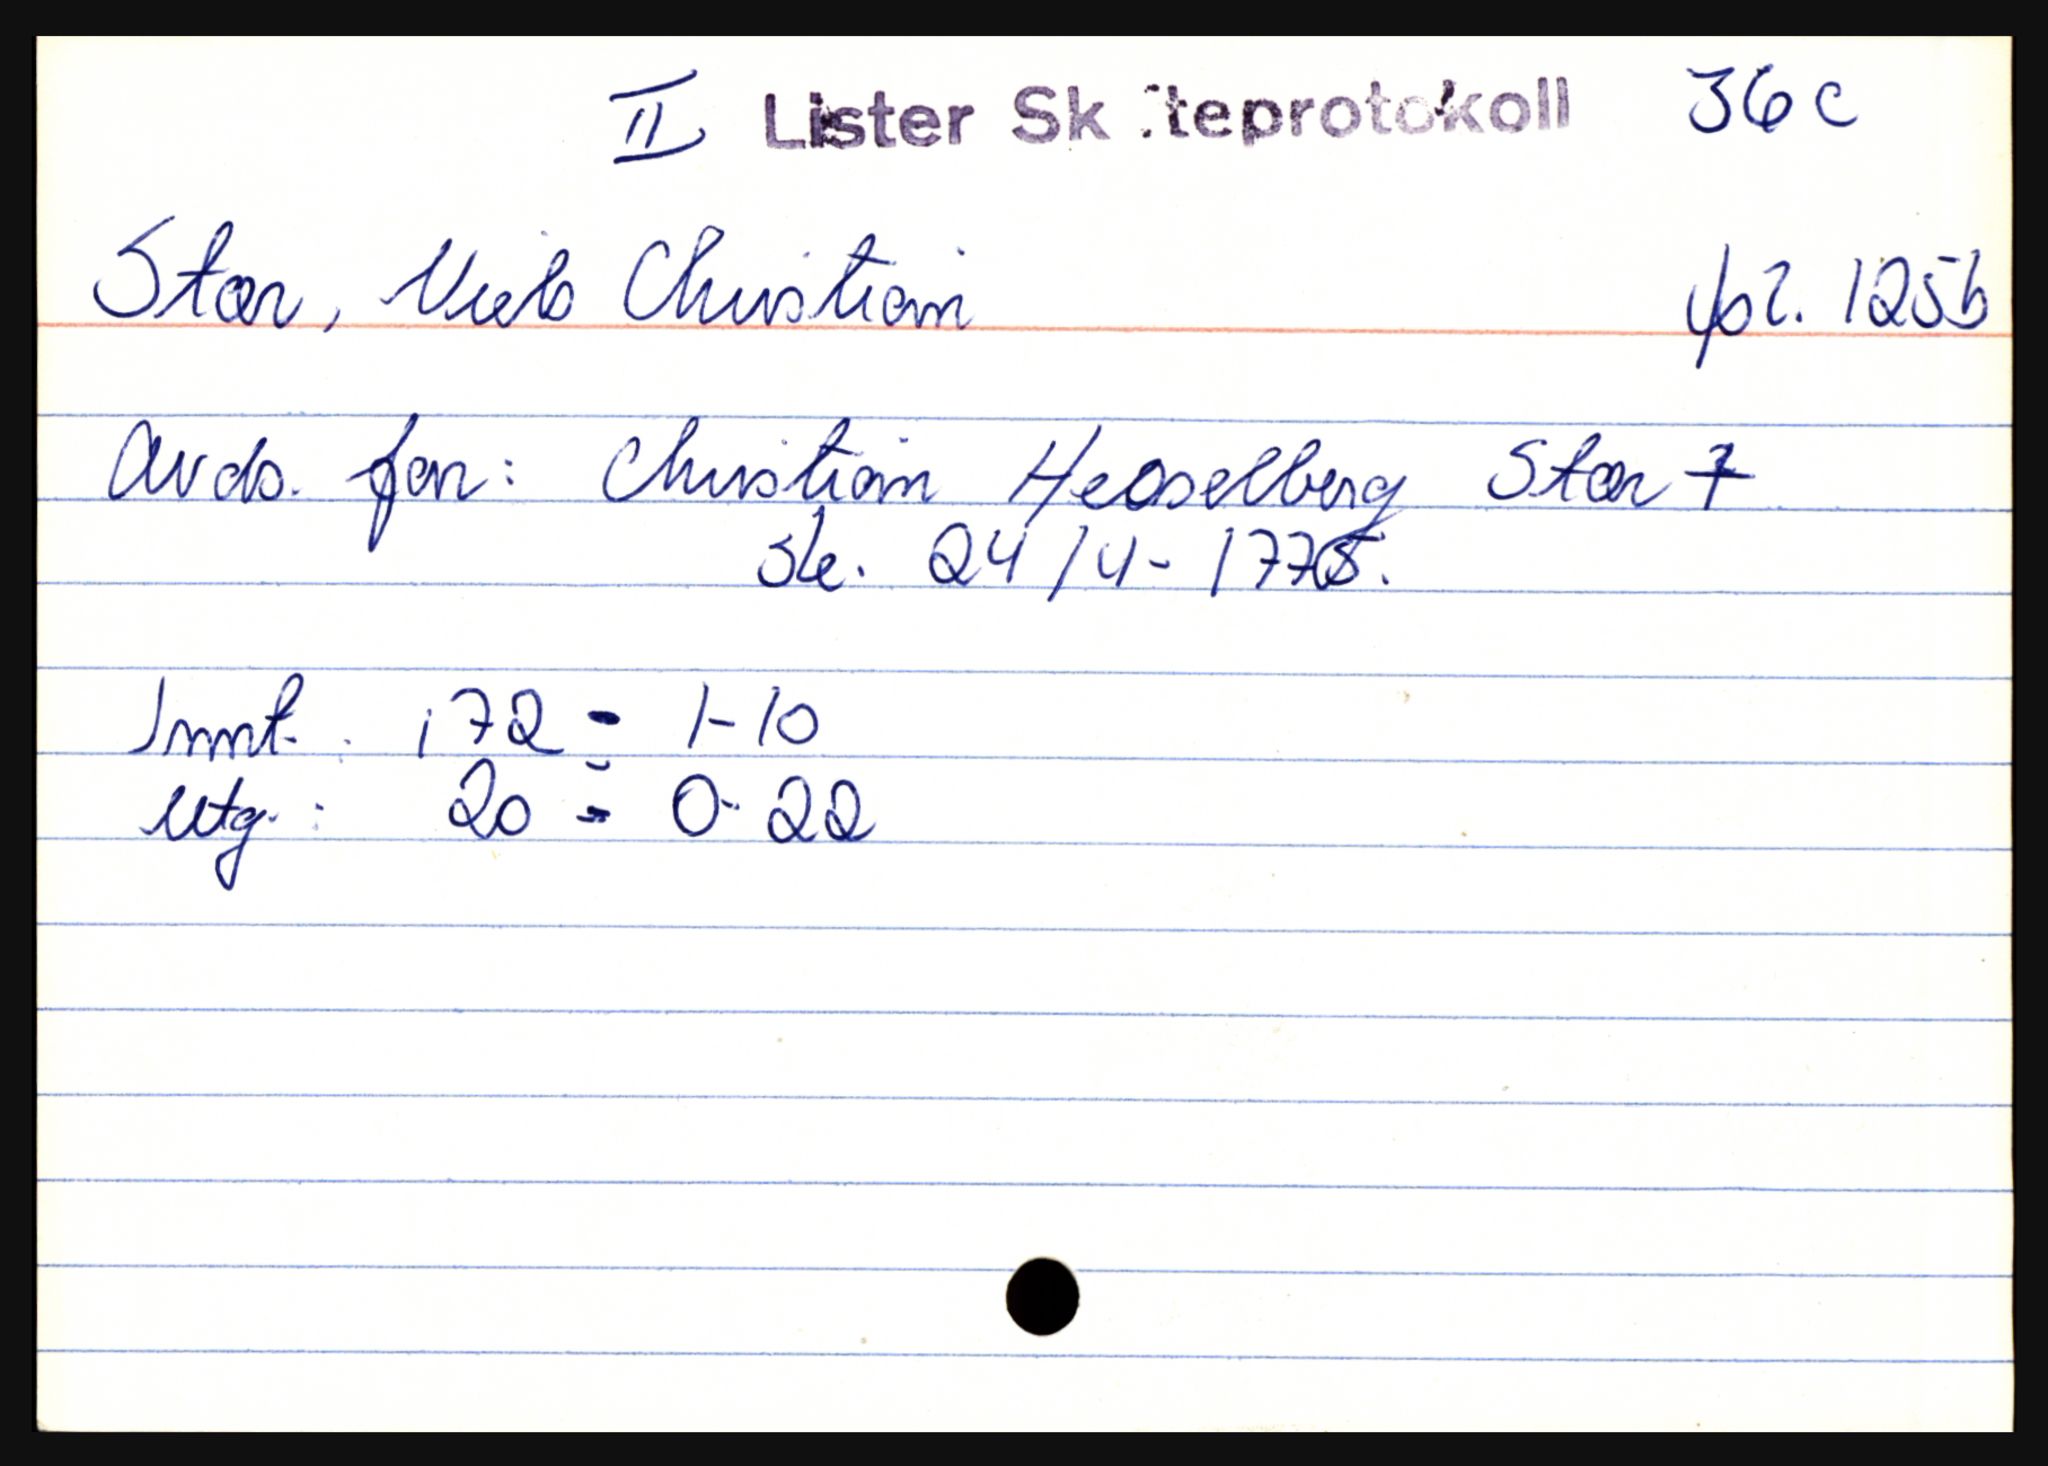 II Lister Sk teprotokoll 36c
Stær, Niels Christian fol. 125b
Avds. far: Christian Hesselberg Stær †
Sk. 24/4-1775.
Innt. : 172 - 1-10
Utg. : 20 - 0-22